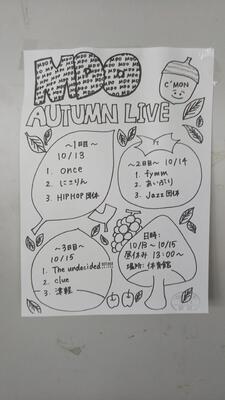 C'MON
AUTUMN LIVE
〜1日目〜
10/13
1. once
2. にこりん
3. HIPHOP団体
〜2日目〜 10/14
1. fymm
2. あいがり
3. Jazz団体
〜3日目〜
10/15
1. The undecided
2. clue
3. 津軽
日時:
10/13 〜 10/15
昼休み 13:00〜
場所: 体育館